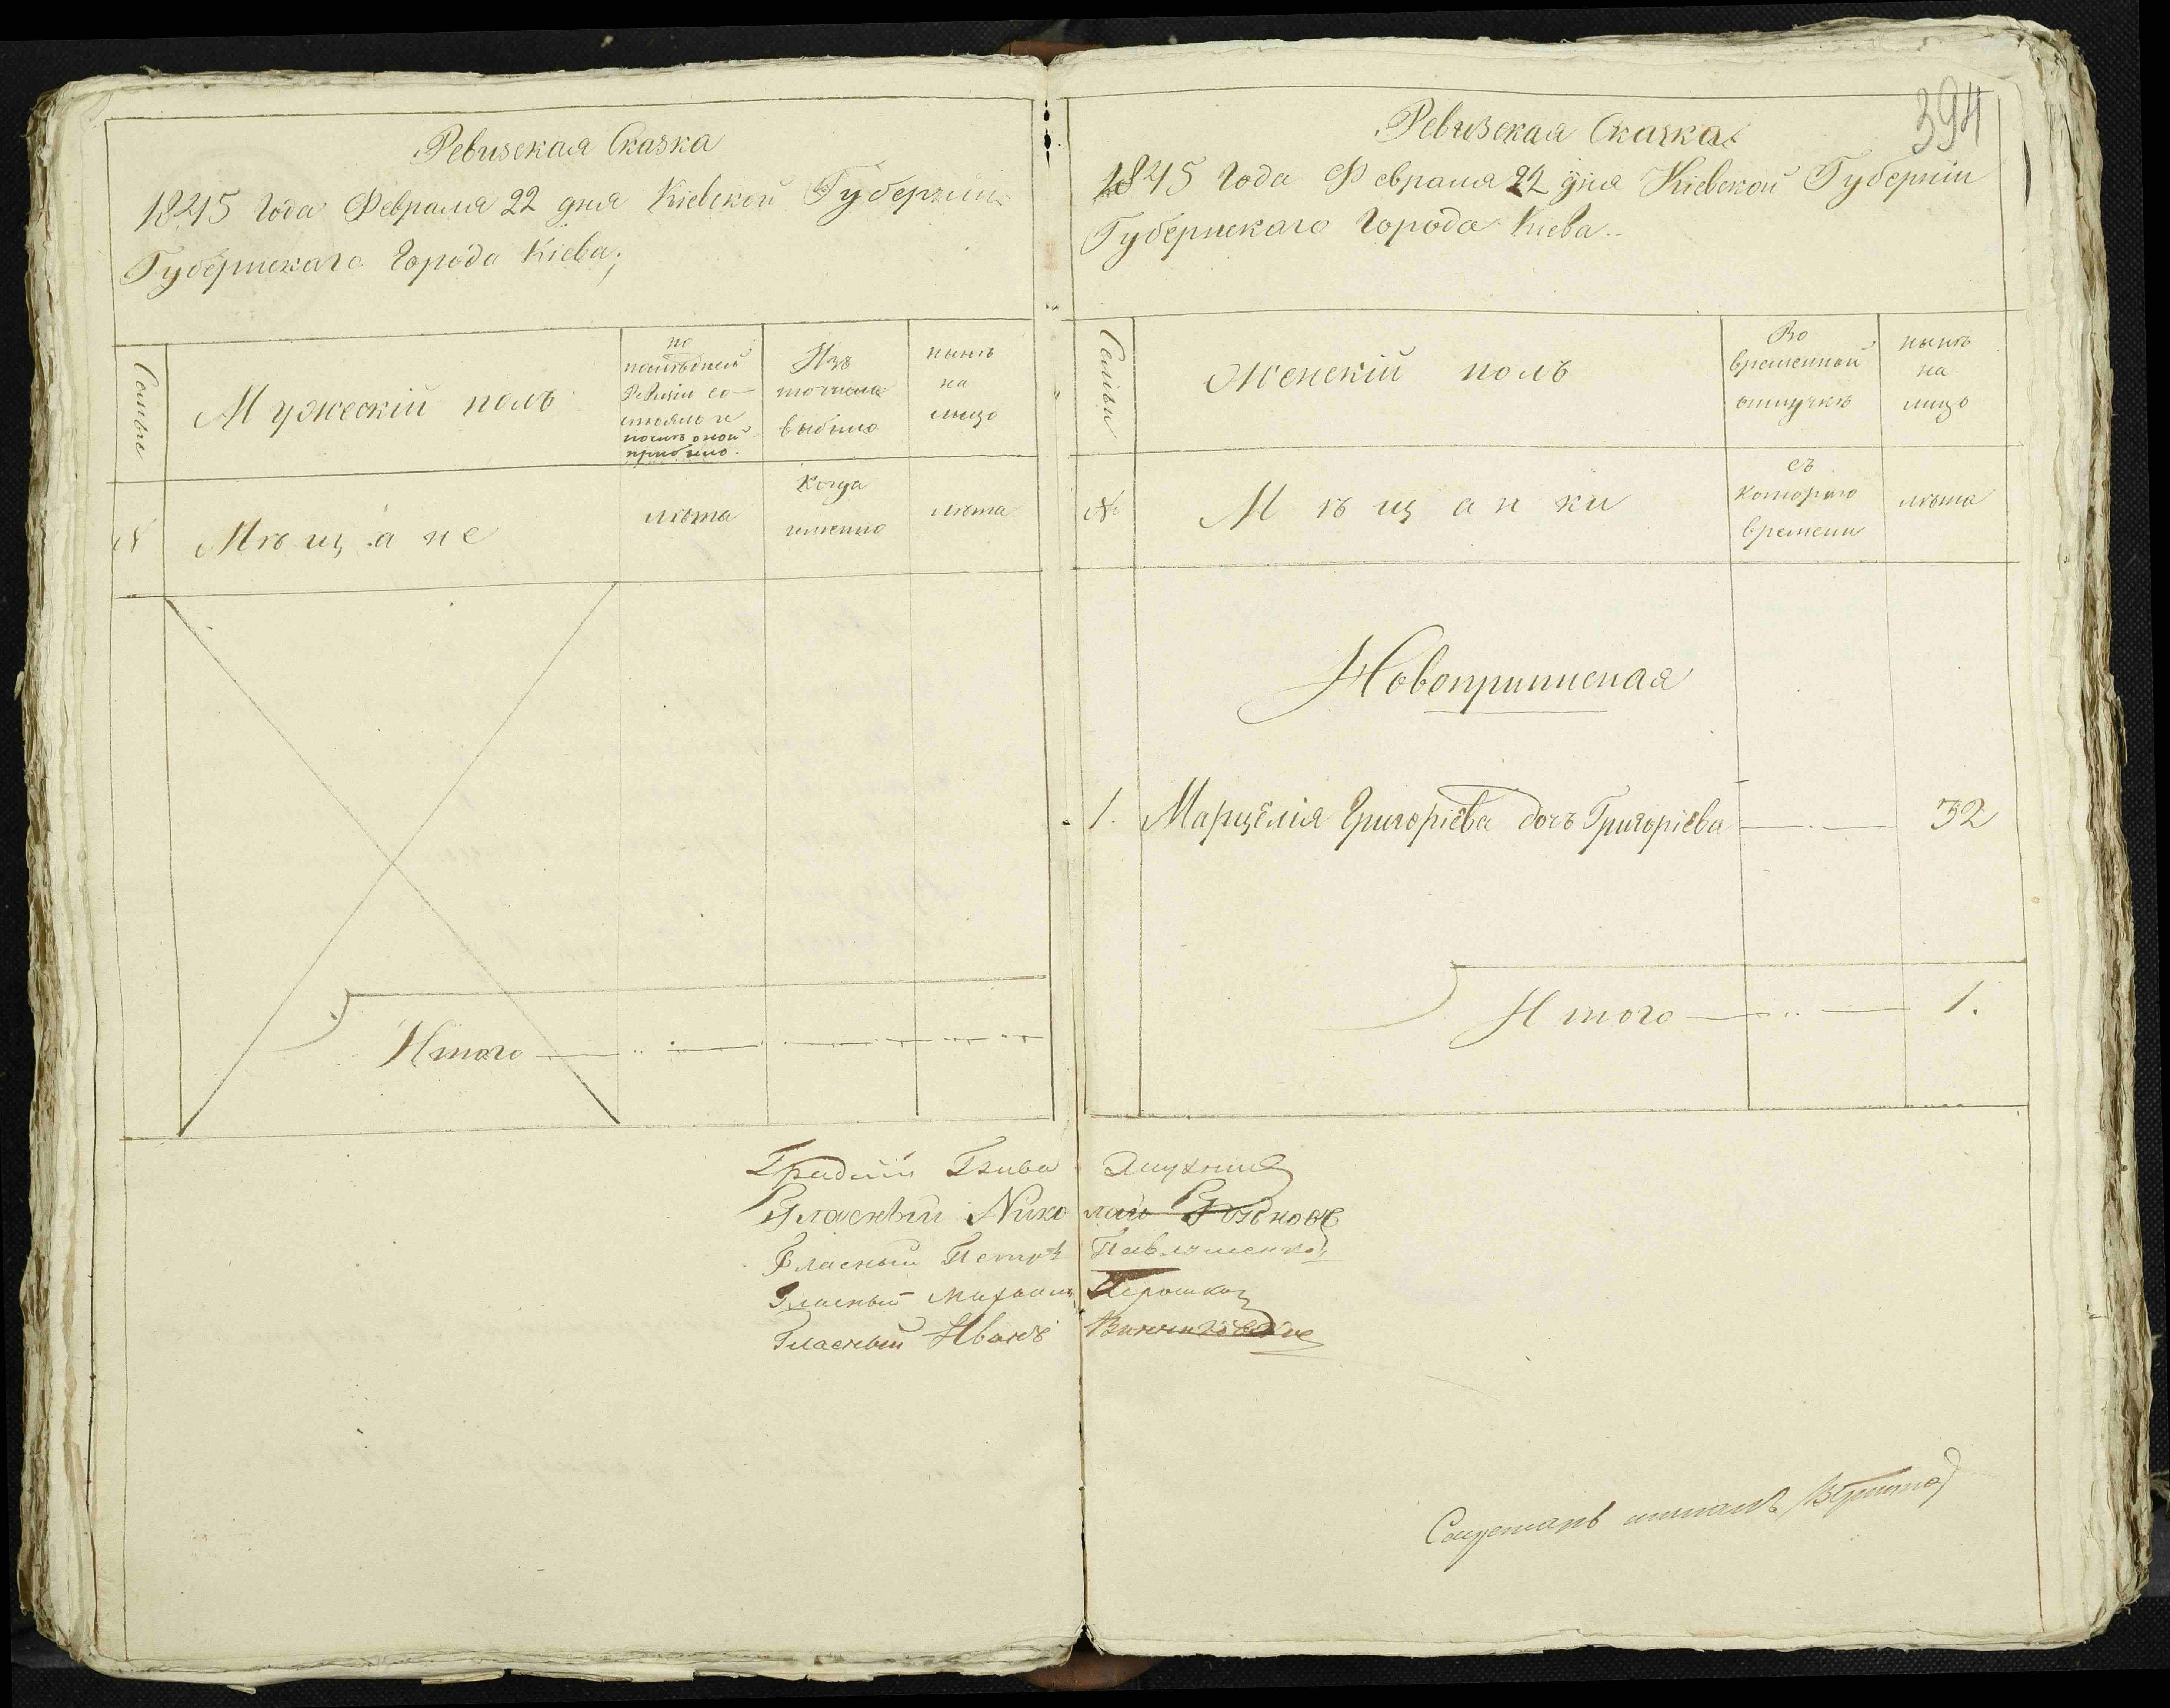 Ревизская Сказка
1845 Года Февраля 22 дня Кіевской Губерніи
Губернскаго Города Кіева;
Семьи
Мужескій полъ
по
послѣдней
Ревизіи со-
стояло и
послѣ оной
прибыло.
Изъ
того числа
выбыло
нынѣ
на
лицо
№
Мѣщане
лѣта
Когда
именно
лѣта
Итого
394
Ревизская Сказка
1845 Года Февраля 22 дня Кіевской Губерніи
Губернскаго Города Кіева
Семьи
Женскій полъ
Во
временной
отлучкѣ
нынѣ
на
лицо
№
Мѣщанки
съ
котораго
времени
лѣта
Новоприписная
1. Марцелія Григоріева дочь Григоріева 32
Итого 1.
Гласный Николай
Гласный Петръ Павлишенко
Гласный Михаилъ
Гласный Иванъ
Секретарь